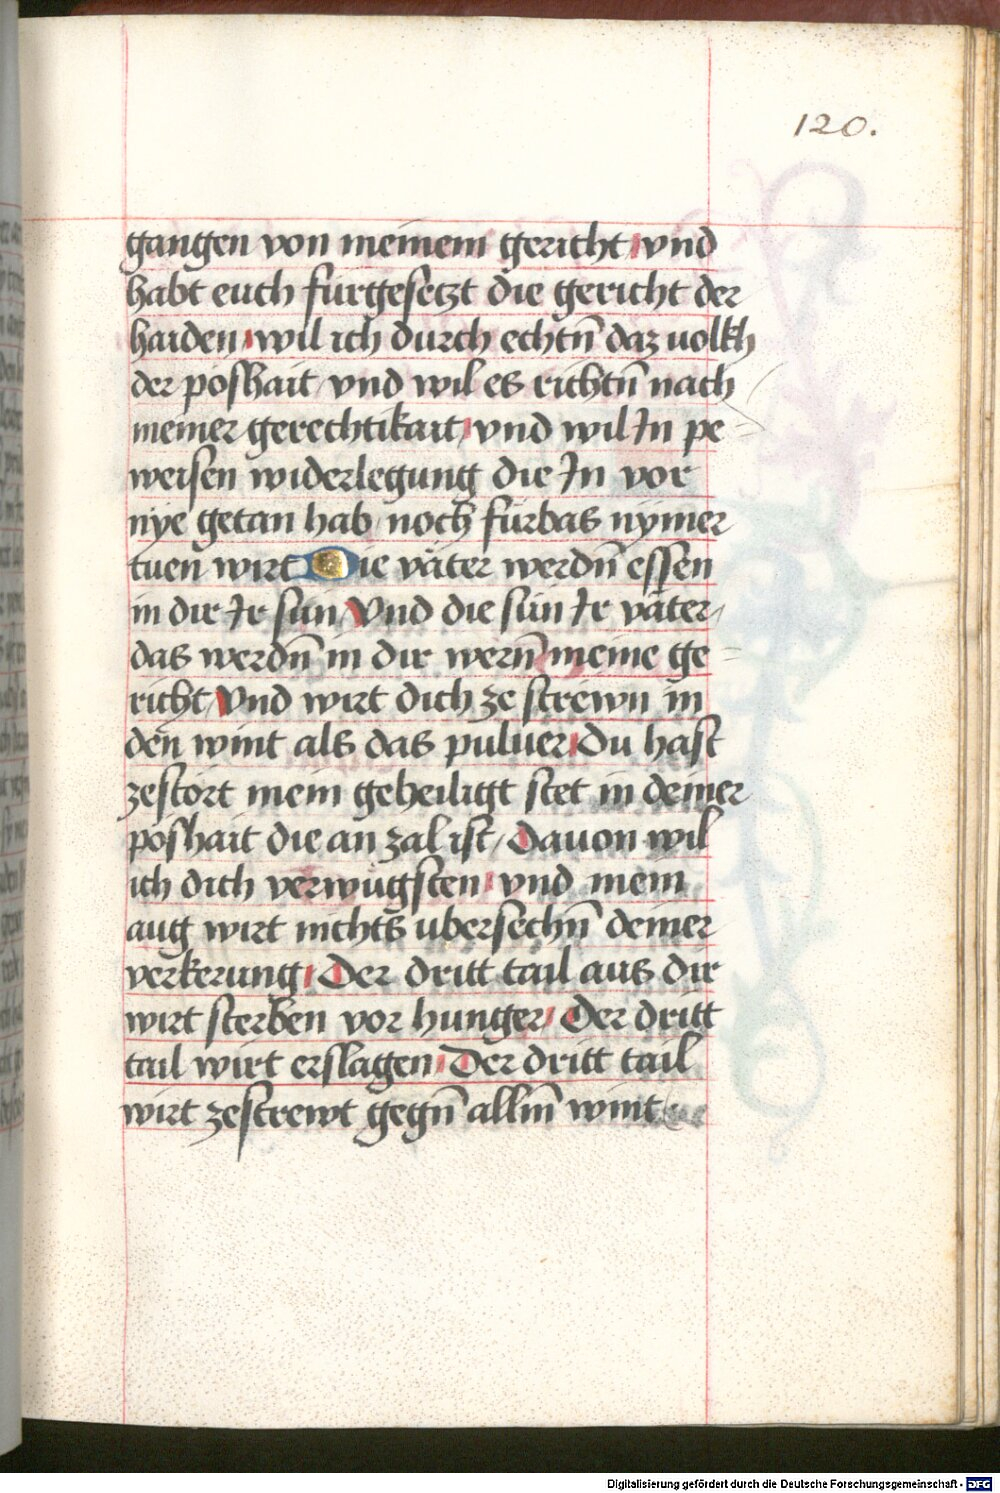 120.
gangen von meinem gericht / vnd
habt euch fürgesetzt die gericht der
haiden / wil ich durch echtn̄ daz uolkh
der poshait / vnd wil es richtn̄ nach
meiner gerechtikait / vnd wil In pe=
weisen widerlegung die In vor
nÿe getan hab / noch fürbas nymer
tuen wirt Die väter werdn̄ essen
in dir Ir sün / Vnd die sün Ir väter /
das werdn̄ in dir wern̄ meine ge=
richt / Vnd wirt dich ze strewn in
den wint als das puluer / Du hast
zestört mein geheiligt stet in deiner
poshait die an zal ist / Dauon wil
ich dich verwügsten / vnd mein
aug wirt nichts ubersechn̄ deiner
verkerung / Der dritt tail aus dir
wirt sterben vor hunger / Der dritt
tail wirt erslagen / Der dritt tail
wirt zestrewt gegn̄ allm̄ wint
Digitalisierung gefördert durch die Deutsche Forschungsgemeinschaft - DFG